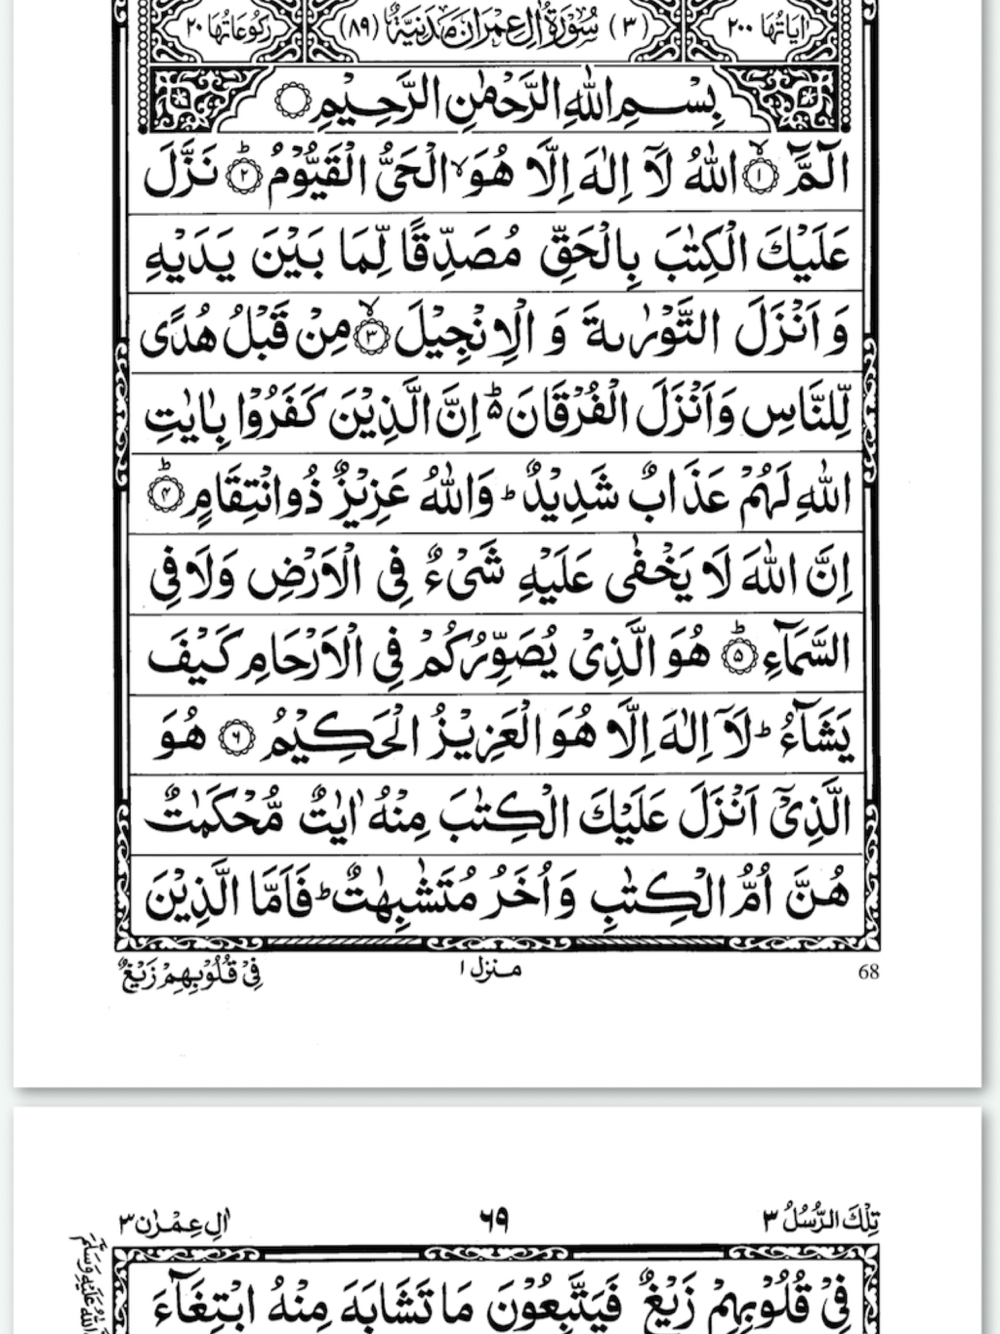 اٰيَاتُهَا ٢٠٠ (٣) سُوْرَةُ اٰلِ عِمْرٰنَ مَدَنِيَّةٌ (٨٩) رُكُوْعَاتُهَا ٢٠
بِسْمِ اللهِ الرَّحْمٰنِ الرَّحِيْمِ
الٓمَّٓ ۙ﴿١﴾ اللهُ لَاۤ اِلٰهَ اِلَّا هُوَ ۙ الْحَيُّ الْقَيُّوْمُ ؕ﴿٢﴾ نَزَّلَ
عَلَيْكَ الْكِتٰبَ بِالْحَقِّ مُصَدِّقًا لِّمَا بَيْنَ يَدَيْهِ
وَ اَنْزَلَ التَّوْرٰىةَ وَ الْاِنْجِيْلَ ۙ﴿٣﴾ مِنْ قَبْلُ هُدًى
لِّلنَّاسِ وَاَنْزَلَ الْفُرْقَانَ ۬ؕ اِنَّ الَّذِيْنَ كَفَرُوْا بِاٰيٰتِ
اللهِ لَهُمْ عَذَابٌ شَدِيْدٌ ؕ وَاللهُ عَزِيْزٌ ذُوانْتِقَامٍ ؕ﴿٤﴾
اِنَّ اللهَ لَا يَخْفٰى عَلَيْهِ شَىْءٌ فِى الْاَرْضِ وَلَا فِى
السَّمَآءِ ؕ﴿٥﴾ هُوَ الَّذِىْ يُصَوِّرُكُمْ فِى الْاَرْحَامِ كَيْفَ
يَشَآءُ ؕ لَاۤ اِلٰهَ اِلَّا هُوَ الْعَزِيْزُ الْحَكِيْمُ ﴿٦﴾ هُوَ
الَّذِىْۤ اَنْزَلَ عَلَيْكَ الْكِتٰبَ مِنْهُ اٰيٰتٌ مُّحْكَمٰتٌ
هُنَّ اُمُّ الْكِتٰبِ وَ اُخَرُ مُتَشٰبِهٰتٌ ؕ فَاَمَّا الَّذِيْنَ
68 منزل ١ فِىْ قُلُوْبِهِمْ زَيْغٌ
تِلْكَ الرُّسُلُ ٣ ٦٩ اٰلِ عِمْرٰن ٣
فِىْ قُلُوْبِهِمْ زَيْغٌ فَيَتَّبِعُوْنَ مَا تَشَابَهَ مِنْهُ ابْتِغَآءَ